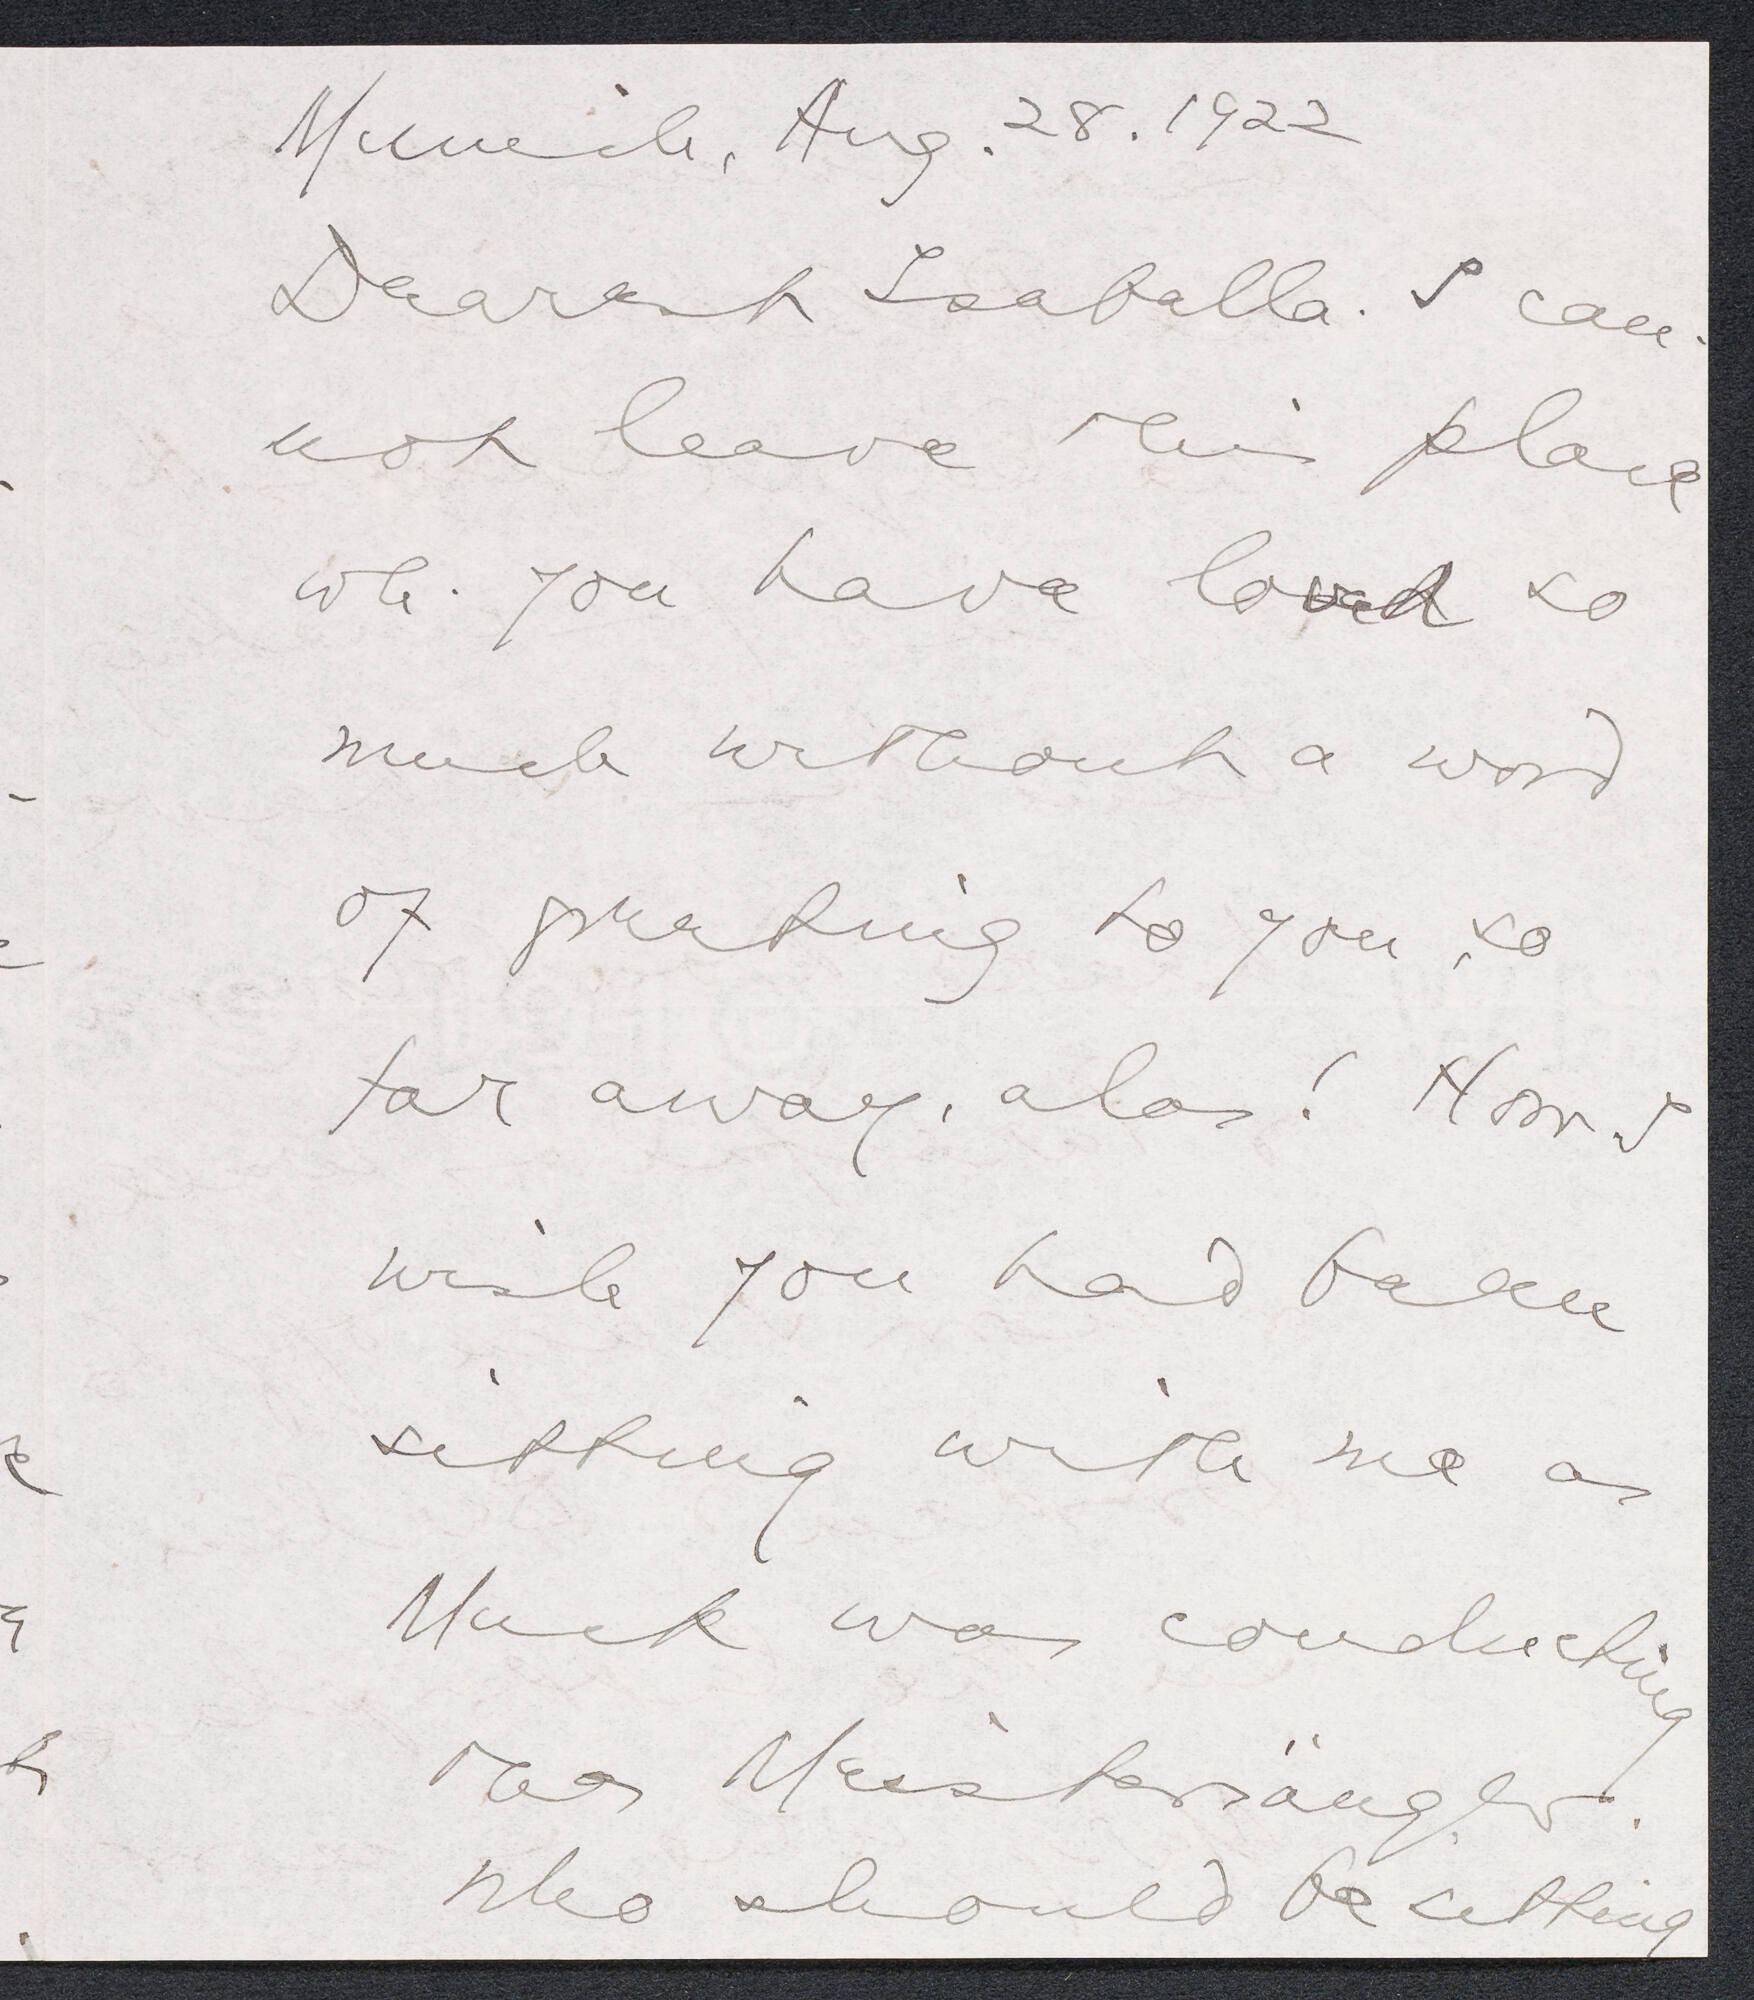 Munich, Aug. 28. 1922
Dearest Isabella. I can-
not leave this place
wh. you have loved so
much without a word
of greeting to you, so
far away, alas! How I
wish you had been
sitting with me as
Muck was conducting
the Meistersänger.
Who should be sitting